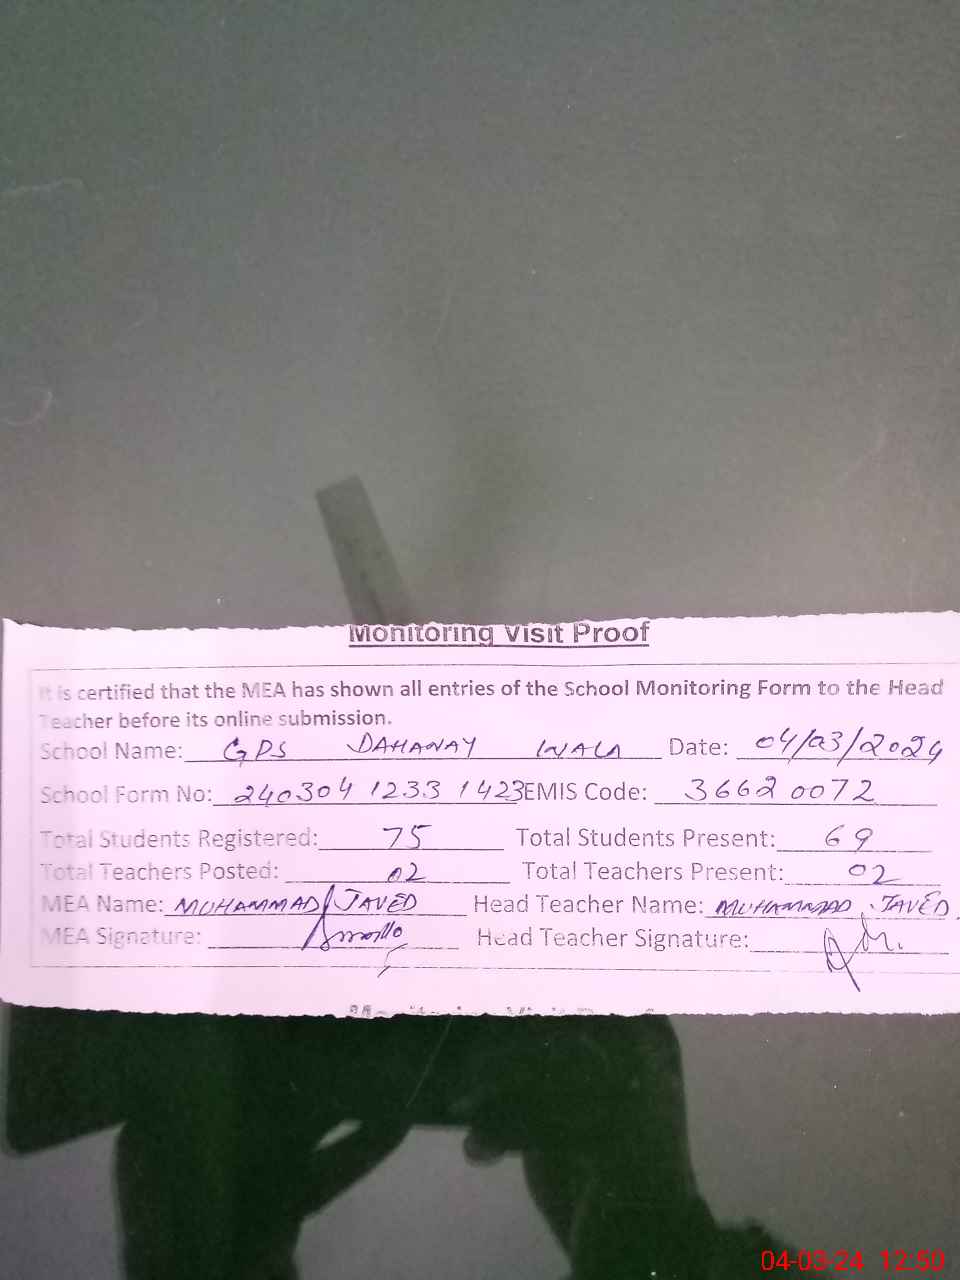 Monitoring Visit Proof
It is certified that the MEA has shown all entries of the School Monitoring Form to the Head
Teacher before its online submission.
School Name: GPS DAHANAY WALA Date: 04/03/2024
School Form No: 240304 1233 1423 EMIS Code: 36620072
Total Students Registered: 75 Total Students Present: 69
Total Teachers Posted: 02 Total Teachers Present: 02
MEA Name: MUHAMMAD JAVED Head Teacher Name: MUHAMMAD JAVED
MEA Signature: Head Teacher Signature:
04-03-24 12:50